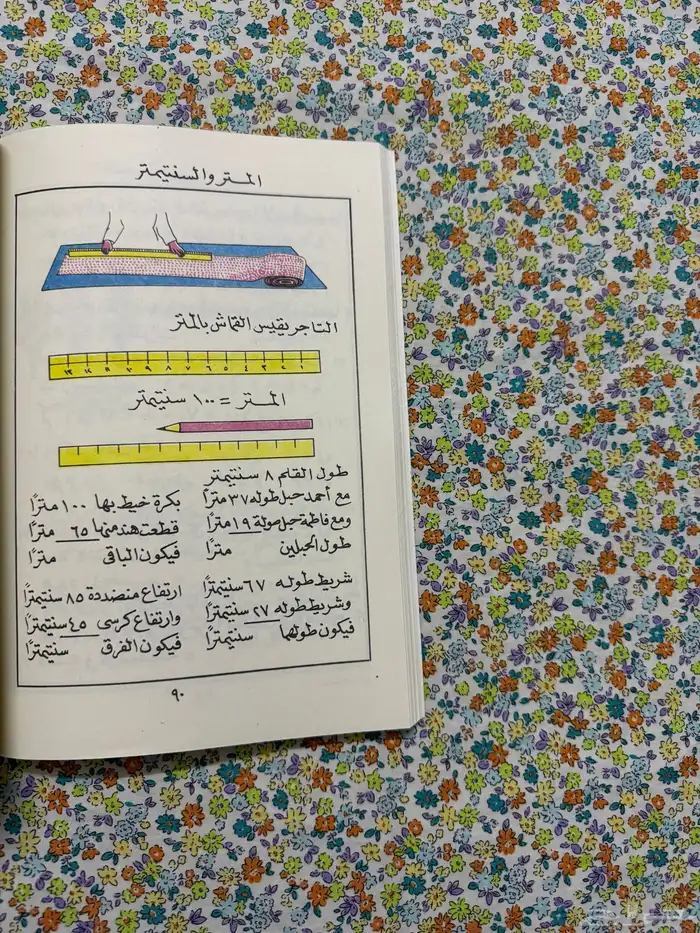 المتر والسنتيمتر
التاجر يقيس القماش بالمتر
١٣ ١٢ ١١ ١٠ ٩ ٨ ٧ ٦ ٥ ٤ ٣ ٢ ١
المتر = ١٠٠ سنتيمتر
طول القلم ٨ سنتيمتر
مع أحمد حبل طوله ٣٧ مترًا
ومع فاطمة حبل صولة ١٩ مترًا
طول الحبلين مترًا
بكرة خيط بها ١٠٠ مترًا
قطعت هند منها ٦٥ مترًا
فيكون الباقى مترًا
شريط طوله ٦٧ سنتيمترًا
وشريط طوله ٢٧ سنتيمترًا
فيكون طولهما سنتيمترًا
ارتفاع منضددة ٨٥ سنتيمترًا
وارتفاع كرسى ٤٥ سنتيمترًا
فيكون الفرق سنتيمترًا
٩٠